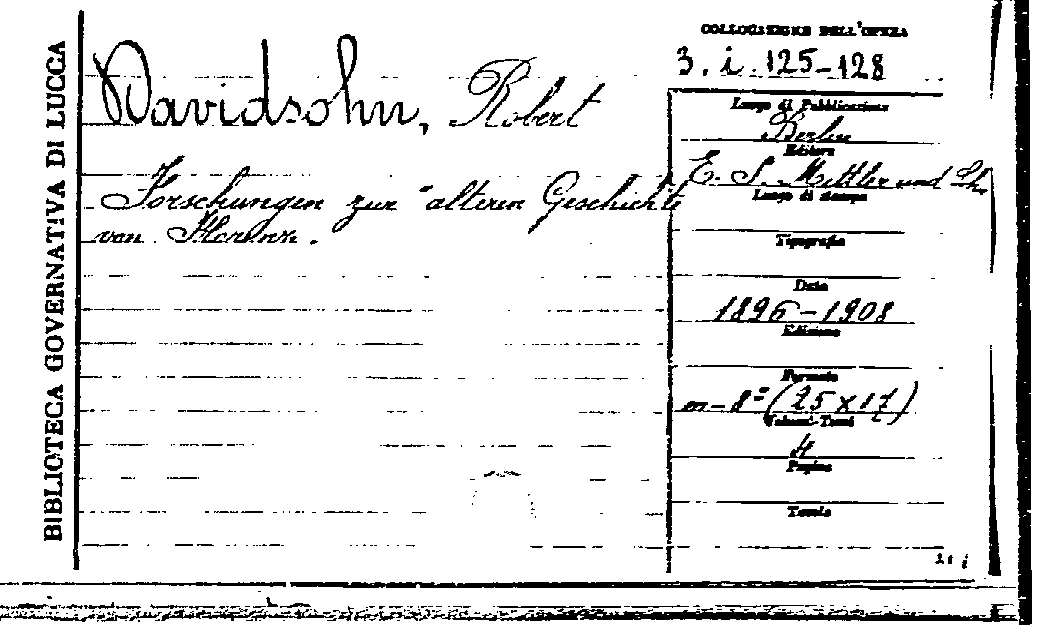 BIBLIOTECA GOVERNATIVA DI LUCCA
Davidsohn, Robert
Forschungen zur älteren Geschichte
von Florenz.
COLLOCAZIONE DELL'OPERA
3. i. 125-128
Luogo di Pubblicazione
Berlin
Editore
E. S. Mittler und
Luogo di stampa
Tipografia
Data
1896-1908
Edizione
Formato
m-8º (25 x 17)
Volumi-Tomi
4
Pagine
Tavole